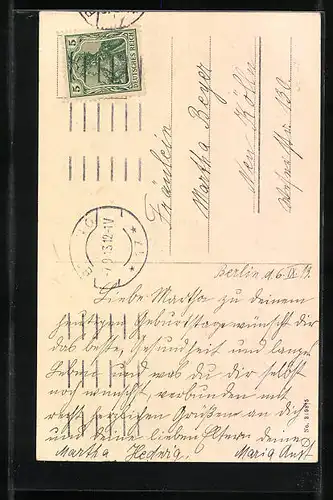 5 5
DEUTSCHES REICH
Fräulein
Martha Beyer
Neu Kölln
130
7.9.13.12-1V
Berlin, d. 6. IX. 13.
Liebe Martha zu deinem
heutigen Geburtstage wünscht dir
das beste, Gesundheit und langes
Leben und was du dir selbst
noch wünscht, verbunden mit
recht herzlichen Grüßen an dich
und deine lieben Eltern deine
Martha Hedwig. Maria